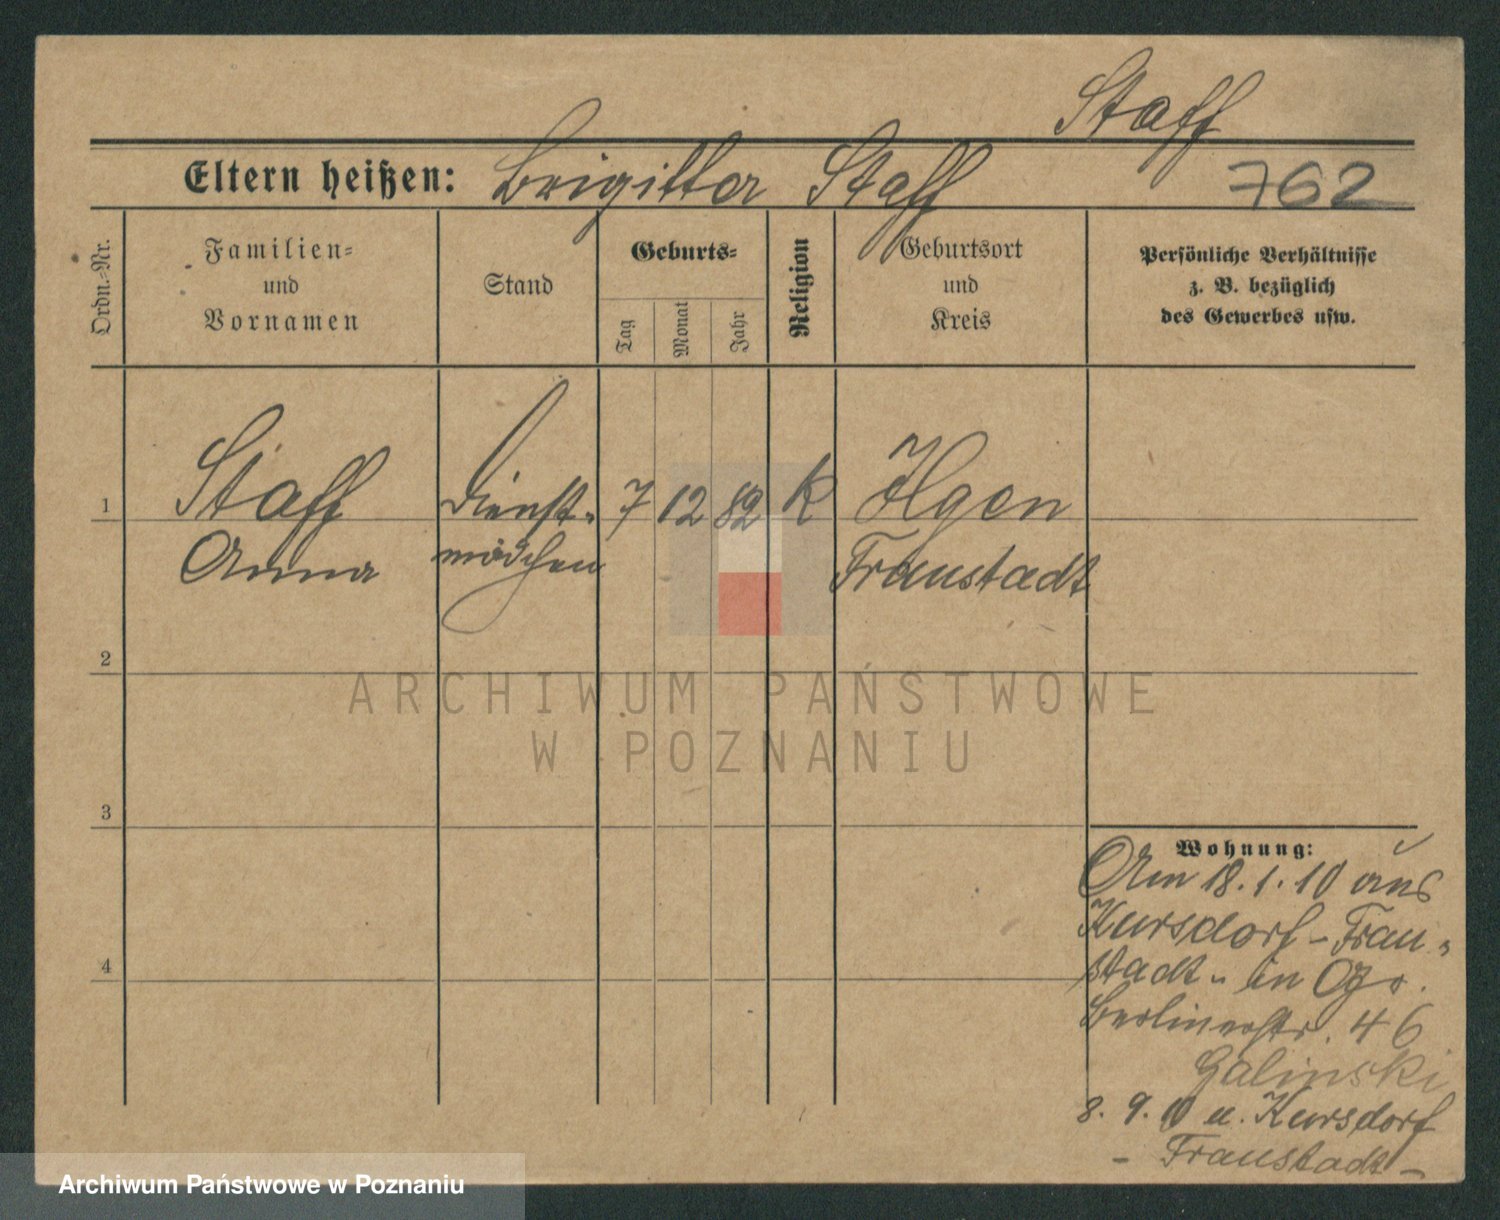 Staff
Eltern heißen: Brigitta Staff
762
Ordn.-Nr.
Familien-
und
Vornamen
Stand
Geburts-
Tag
Monat
Jahr
Religion
Geburtsort
und
Kreis
Persönliche Verhältnisse
z. B. bezüglich
des Gewerbes usw.
1
Staff
Anna
Dienst-
mädchen
7
12
82
K
Ilgen
Fraustadt
2
3
4
Wohnung:
Am 18.1.10 aus
Kursdorf - Frau-
stadt - in
Berlinerstr. 46
Galinski
8. 9. 10 n. Kursdorf
- Fraustadt -
ARCHIWUM PAŃSTWOWE
W POZNANIU
Archiwum Państwowe w Poznaniu